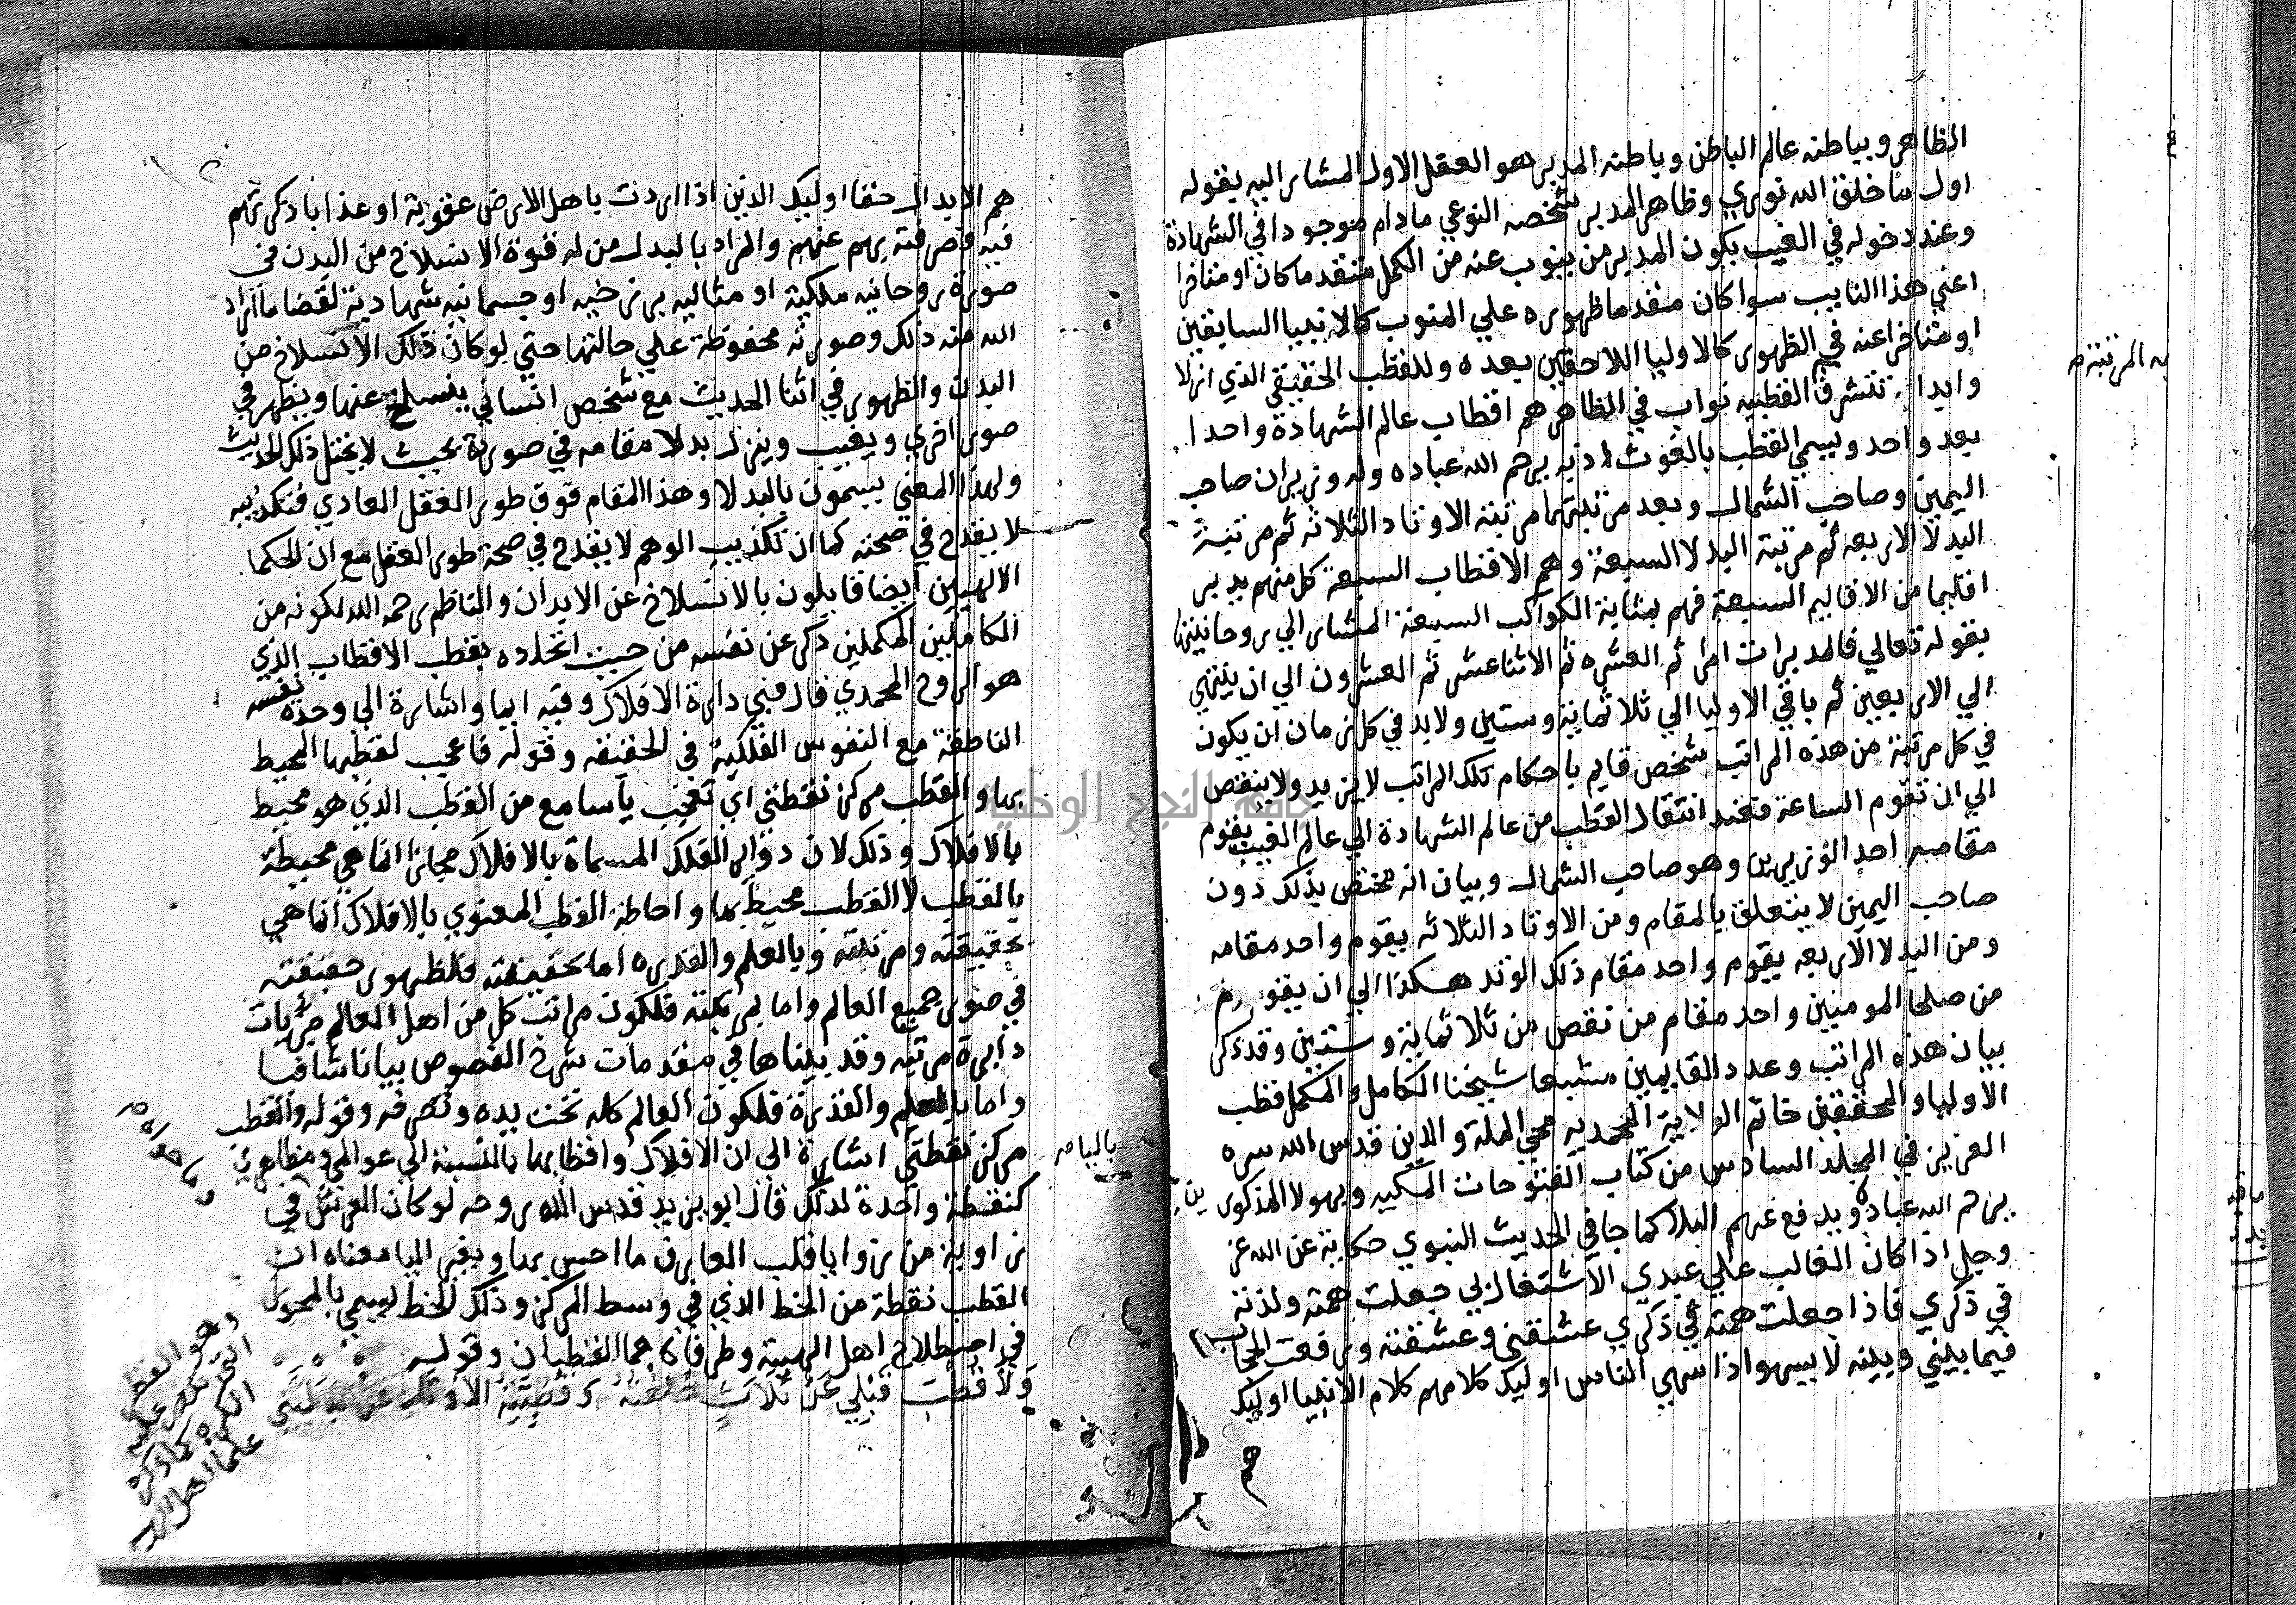 الظاهر وبباطنه عالم الباطن وباطنه المدبر هو العقل الاول المشار اليه بقوله
اول ما خلق الله نوري وظاهر المدبر شخصه النوعي ما دام موجودا في الشهادة
وعند دخوله في الغيب يكون المدبر من ينوب عنه من الكمل متقدما كان او متاخرا
اعني هذا النايب سوا كان متقدما ظهوره علي المنوب كالانبيا السابقين
او متاخرا عنه في الظهور كالاوليا اللاحقين بعده وللقطب الحقيقي الذي ازلا
وابدا القطبيه نواب في الظاهر هم اقطاب عالم الشهادة واحدا
بعد واحد ويسمي القطب بالغوث اذ به يرحم الله عباده وله وزيران صاحب
اليمين وصاحب الشمال وبعد مرتبتهما مرتبة الاوتاد الثلاثه ثم مرتبة
البدلا الاربعه ثم مرتبة البدلا السبعة وهم الاقطاب السبعة كل منهم يدبر
اقليما من الاقاليم السبعة فهم بمثابة الكواكب السبعة المشار الي روحانيتها
بقوله تعالي فالمدبرات امرا ثم العشره ثم الاثنا عشر ثم العشرون الي ان ينتهي
الي الاربعين ثم باقي الاوليا الي ثلاثماية وستين ولابد في كل زمان ان يكون
في كل مرتبة من هذه المراتب شخص قايم باحكام تلك المراتب لا يزيد ولا ينقص
الي ان تقوم الساعة فعند انتقال القطب من عالم الشهادة الي عالم الغيب يقوم
مقامه احد الوزيرين وهو صاحب الشمال وبيان انه مختص بذلك دون
صاحب اليمين لا يتعلق بالمقام ومن الاوتاد الثلاثه يقوم واحد مقامه
ومن البدلا الاربعه يقوم واحد مقام ذلك الوتد هكذا الي ان يقوم
من صلحا المومنين واحد مقام من نقص من ثلاثماية وستين وقد ذكر
بيان هذه المراتب وعدد القايمين مشبعا شيخنا الكامل والمكمل قطب
الاوليا والمحققين خاتم الولاية المحمديه محي الملة والدين قدس الله سره
العزيز في المجلد السادس من كتاب الفتوحات المكيه وبهولا المذكورين
يرحم الله عباده ويدفع عنهم البلا كما جا في الحديث النبوي حكاية عن الله عز
وجل اذا كان الغالب علي عبدي الاشتغال بي جعلت همته ولذته
في ذكري فاذا جعلت همته في ذكري عشقني وعشقته ورفعت الحجاب
فيما بيني وبينه لا يسهوا اذا سهي الناس اوليك كلامهم كلام الانبيا اوليك
هم
هم الابدال حقا اوليك الذين اذا اردت باهل الارض عقوبة او عذابا ذكرتهم
فيه فصرفته بهم عنهم والمراد بالبدل من له قوة الانسلاخ من البدن في
صورة روحانيه ملكية او مثاليه برزخيه او جسمانيه شهادية لقضا ما اراد
الله منه ذلك وصورته محفوظة علي حالتها حتي لو كان ذلك الانسلاخ من
البدن والظهور في اثنا الحديث مع شخص انساني ينسلخ عنها ويظهر في
صور اخري ويغيب وينزل بدلا مقامه في صورة بحيث لا يختل ذلك الحديث
ولهذا المعني يسمون بالبدلا وهذا المقام فوق طور العقل العادي فتكذيبه
لا يقدح في صحته كما ان تكذيب الوهم لا يقدح في صحة طور العقل مع ان الحكما
الالهيين ايضا قايلون بالانسلاخ عن الابدان والناظم رحمه الله لكونه من
الكاملين المكملين ذكر عن نفسه من حيث اتحاده بقطب الاقطاب الذي
هو الروح المحمدي قال فبي دارة الافلاك وفيه ايما واشارة الي وحدة نفسه
الناطقة مع النفوس الفلكية في الحقيقه وقوله فاعجب لقطبها المحيط
بها والقطب مركز نقطتي اي تعجب يا سامع من القطب الذي هو محيط
بالافلاك وذلك لان دواير الفلك المسماة بالافلاك مجازا انما هي محيطة
بالقطب لا القطب محيط بها واحاطة القطب المعنوي بالافلاك انما هي
بحقيقته ومرتبته وبالعلم والقدره اما بحقيقته فلظهور حقيقته
في صور جميع العالم واما بمرتبته فلكون مراتب كل من اهل العالم جزئيات
دايرة مرتبته وقد بيناها في مقدمات شرح الفصوص بيانا شافيا
واما بالعلم والقدرة فلكون العالم كله تحت يده وتصرفه وقوله والقطب
مركز نقطتي اشارة الي ان الافلاك واقطابها بالنسبة الي عوالمي ومظاهري
كنقطة واحدة لذلك قال ابو يزيد قدس الله روحه لو كان العرش في
زاوية من زوايا قلب العارف ما احس بها وبغير اليا معناه ان
القطب نقطة من الخط الذي في وسط المركز وذلك الخط يسمي بالمحور
في اصطلاح اهل الهيية وطرفاه هما القطبان وقوله
ولا قطب قبلي عن ثلاث خلفته